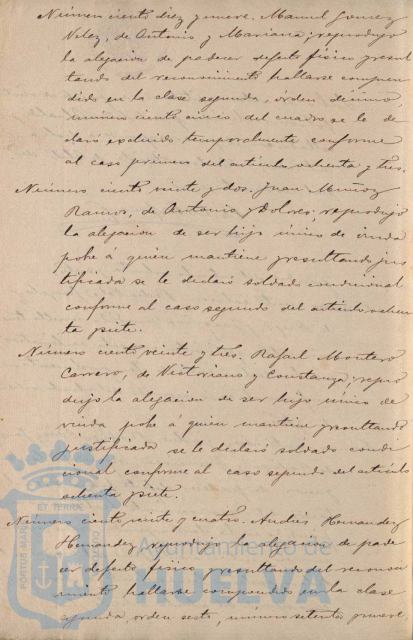 Número ciento diez y nueve. Manuel Gomez
Velez, de Antonio y Mariana; reprodujo
la alegacion de padecer defecto físico y resul
tando del reconocimiento hallarse compren
dido en la clase segunda, órden décimo,
número ciento cinco del cuadro se le de
claró excluido temporalmente conforme
al caso primero del artículo ochenta y tres.
Número ciento veinte y dos. Juan Muñoz
Ramos, de Antonio y Dolores; reprodujo
la alegacion de ser hijo único de viuda
pobre á quien mantiene y resultando jus
tificada se le declaró soldado condicional
conforme al caso segundo del artículo ochen
ta y siete.
Número ciento veinte y tres. Rafael Montero
Carrero, de Victoriano y Constanza; repro
dujo la alegacion de ser hijo único de
viuda pobre á quien mantiene y resultando
justificada se le declaró soldado condi
cional conforme al caso segundo del artículo
ochenta y siete.
Número ciento veinte y cuatro. Andrés Hernandez
Hernandez, reprodujo la alegacion de pade
cer defecto físico y resultando del reconoci
miento hallarse comprendido en la clase
segunda, orden sesto, número setenta y nueve
PORTUS MARIS
ET TERRAE
Ayuntamiento de
HUELVA